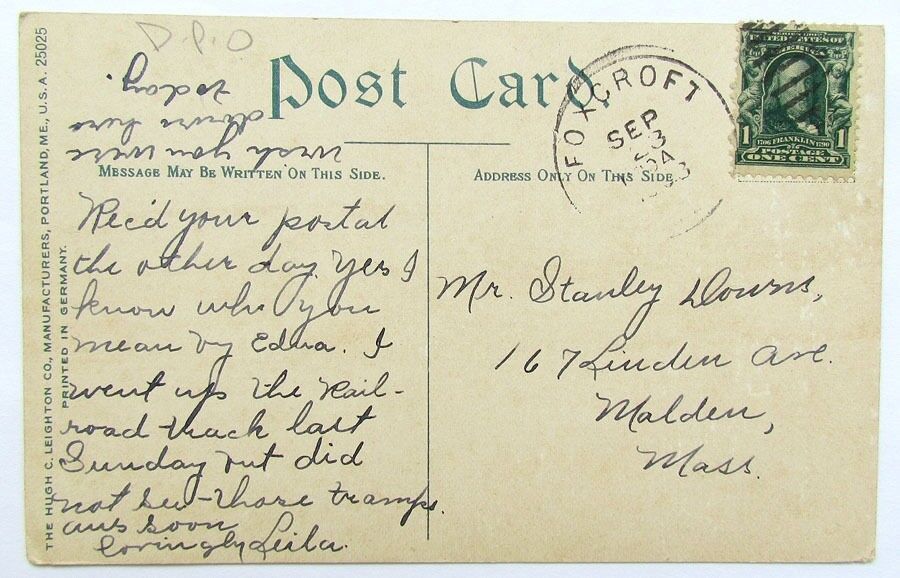 D.P.O
Post Card.
wish you were
down here
today.
MESSAGE MAY BE WRITTEN ON THIS SIDE.
ADDRESS ONLY ON THIS SIDE.
THE HUGH C. LEIGHTON CO., MANUFACTURERS, PORTLAND, ME., U.S.A. 25025
PRINTED IN GERMANY.
FOXCROFT
SEP
SERIES 1902
UNITED STATES OF
AMERICA
1 1706 FRANKLIN 1790 1
POSTAGE
ONE CENT
Rec'd your postal
the other day. Yes I
know who you
mean by Edna. I
went up the Rail-
road track last
Sunday but did
not see those tramps.
ans soon
lovingly Leila.
Mr. Stanley Downs,
167 Linden Ave.
Malden,
Mass.